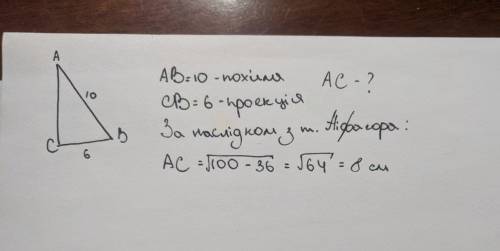 A
10
C
B
6
AB=10 - похила AC - ?
CB=6 - проекція
За наслідком з т. Піфагора:
AC = √100 - 36 = √64 = 8 см